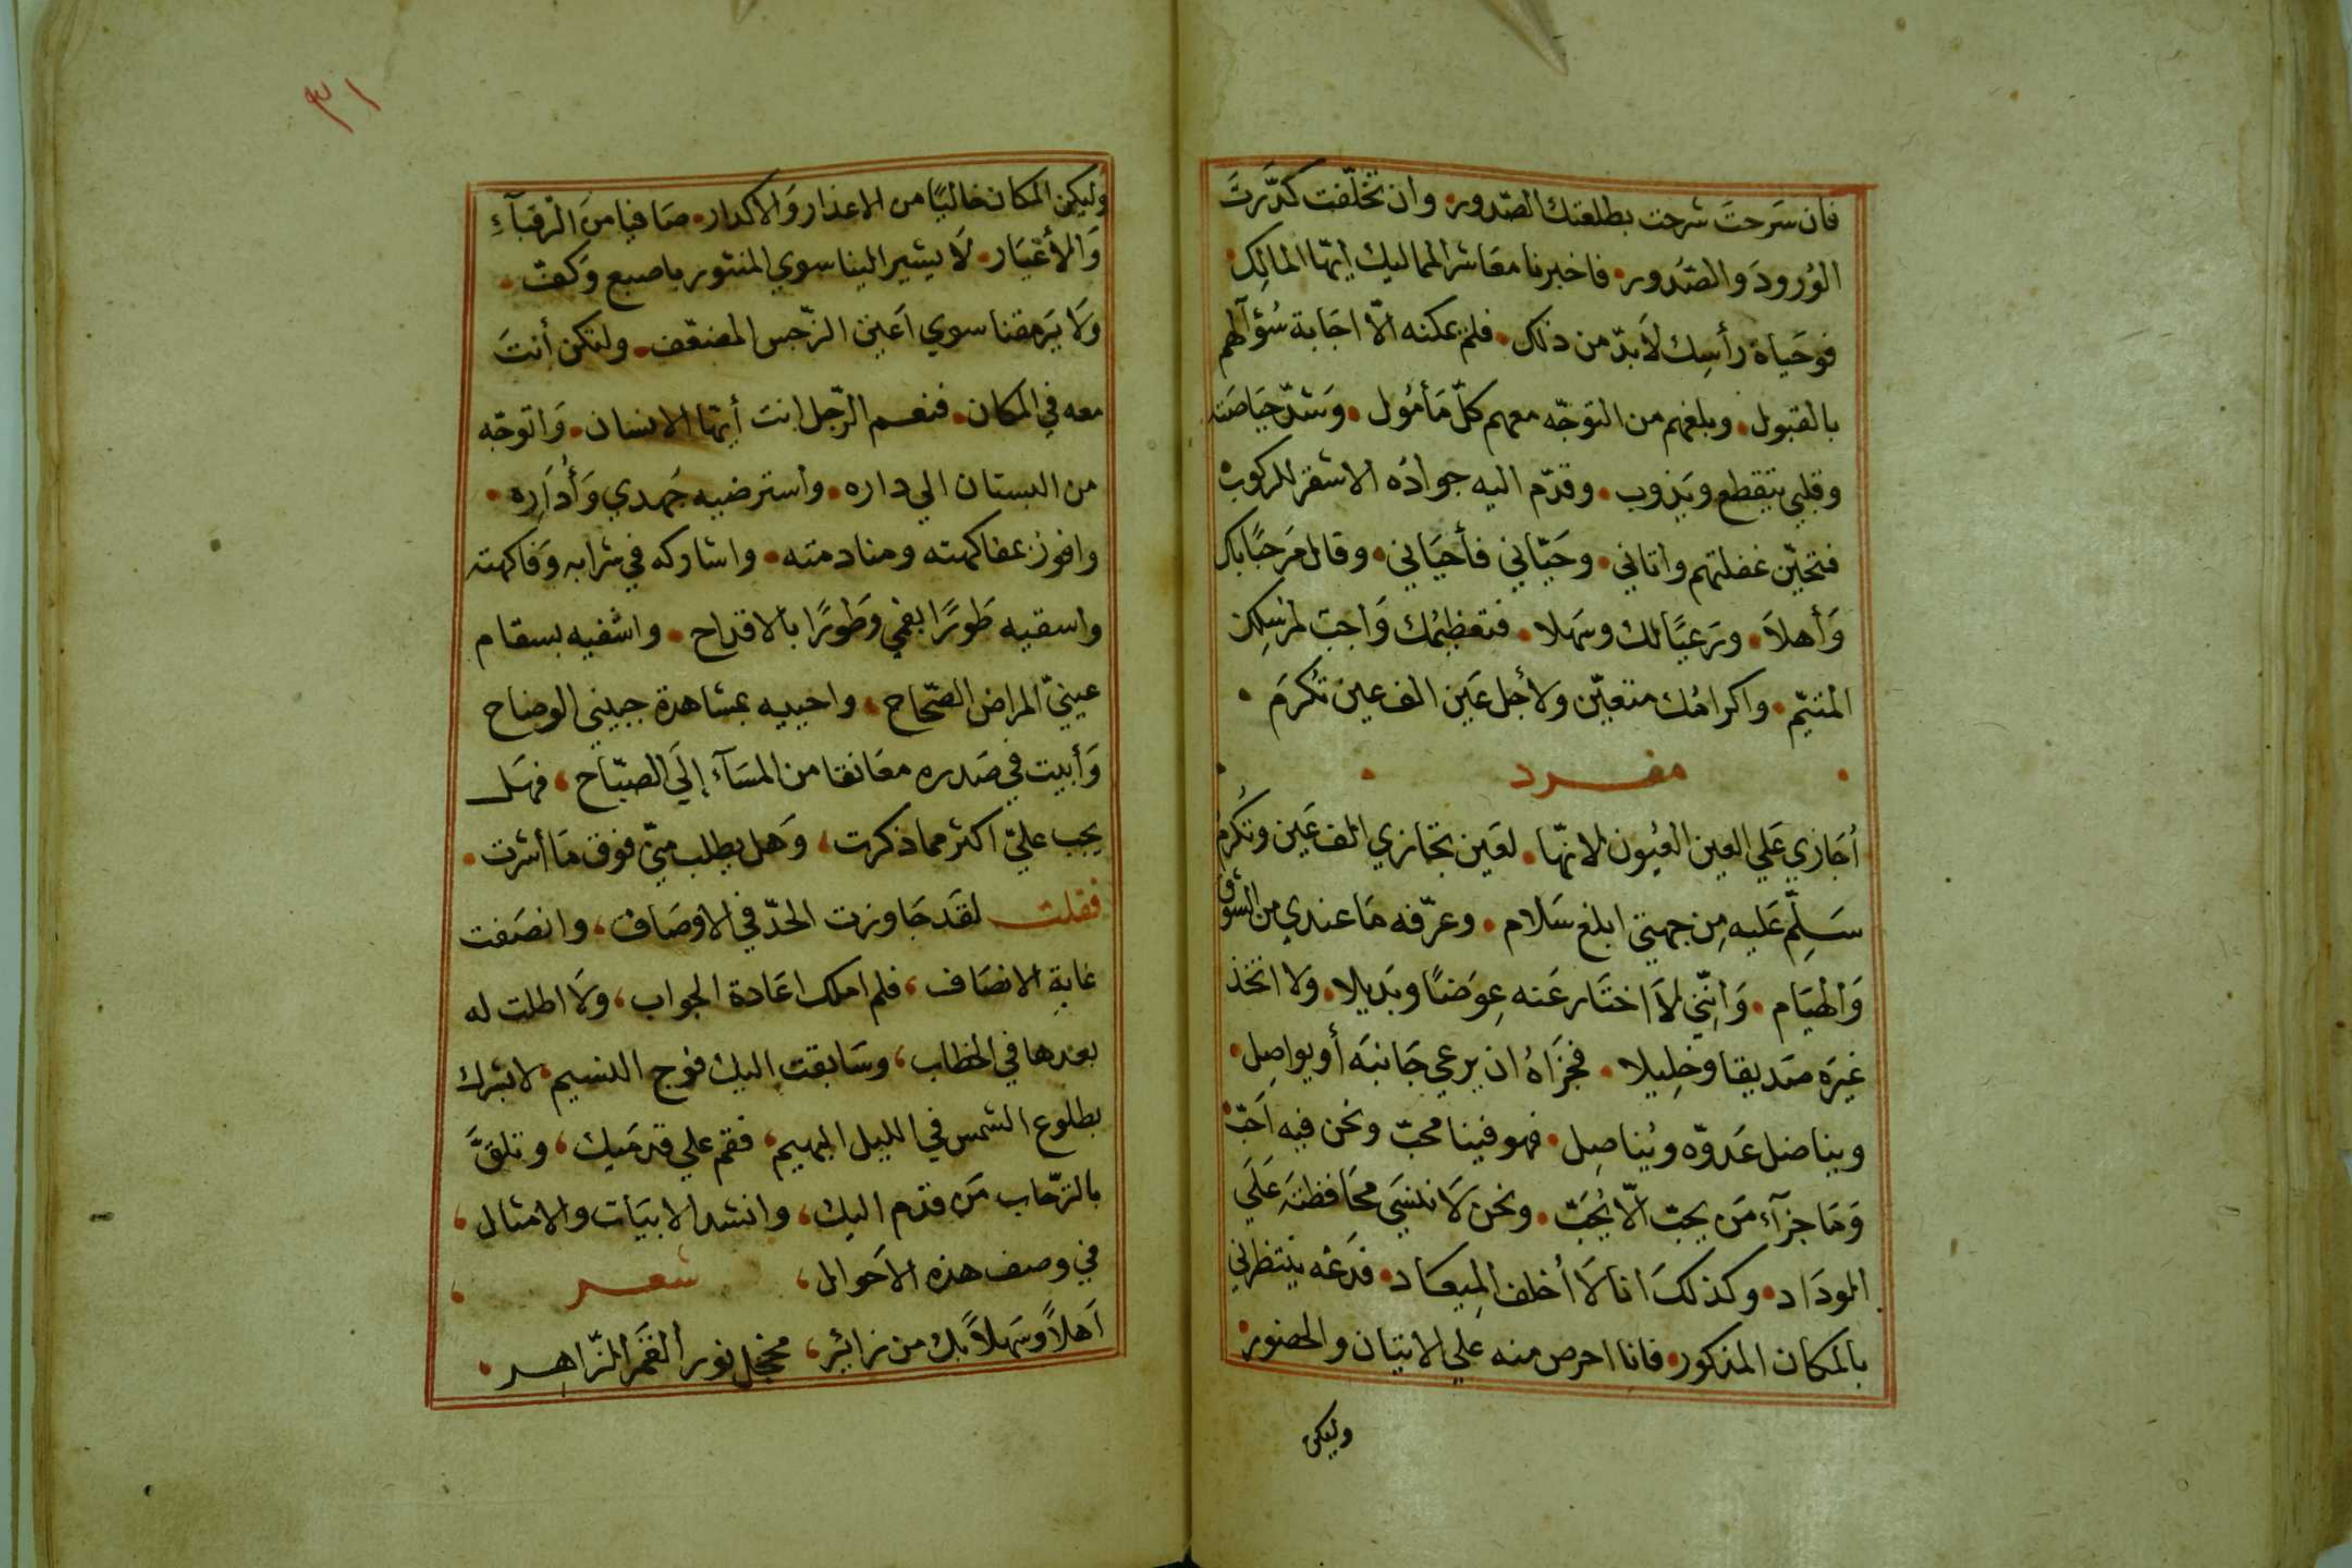 فان سَرحتَ شرحت بطلعتك الصّدور• وان تخلّفت كدَّرتَ
الوُرودَ والصّدور• فاخبرنا معَاشر المماليك ايّها المالك•
فوحَياة رأسِك لاَبدّ من ذلك• فلم يمكنه الّا اجَابة سُؤآلهم
بالقبول• وبلغهم من التوجّه معهم كلّ مَأمُول• وَشدّ حيَاصَته
وقلبي يتقطع ويَذوب• وقدّم اليه جوادُه الاشقر للركوب•
فتحيّن غفلتهم واتاني• وحَيّاني فأحيَاني• وقال مَرحبًا بك
وَأهلاَ• ورَعيًا لك وسَهلا• فتعظيمُك وَاجبٌ لمُرسِلك
المُتيّم• واكرامُك متعيّن ولأجل عَين الف عين تُكرَم•
مفرد
أُجَازي عَلي العين العُيون لانهّا• لعَين تجَازي الف عَين وتُكرَمُ
سَلِّم عَليه مِن جهتي ابلغ سَلام• وعرّفه مَا عندي من الشوق
وَالهيَام• وَانِّني لاَ اختَار عَنه عِوَضًا وبَديلا• وَلا اتخذ
غيرَه صَديقا وخلِيلا• فجزَاهُ ان يرعي جَانبَه أو يواصِل•
ويناضل عَدوّه ويُناصِل• فهو فينا محبّ ونحن فيه اَحَبّ•
وَمَا جزآء مَن يحبّ الّا يُحَبّ• ونحن لَا ننسَي محَافظتَه عَلَي
المودَاد• وكذلكَ انا لَا أُخلف المِيعَاد• فدَعْه ينتظرني
بالمكان المذكور• فانا احرص منه علي الاتيان والحضور•
وليكن
٣١
وَليكن المكان خاليًا من الاعذار وَالاكدار• صَافيا منَ الرّقبَآءِ
وَالأغيَار• لَا يشير الينا سوي المنثور باصبع وَكفّ•
وَلَا يَرمقنا سوي اَعين النّرجس المضعّف• ولتكن أنتَ
معه في المكان• فنعم الرّجل انتَ أيّها الانسان• وَاتوجّه
من البستان الي داره• واسترضيه جَهدي وَأُدَارِه•
وافوز بمفاكهته ومنادمته• واشاركه في شرابه وَفاكهته
واسقيه طَورًا بفمي وَطَورًا بالاقداح• واشفيه بسقام
عينيّ المراض الصّحَاح، واحييه بمشاهدة جبيني الوضاح
وَأبيت في صَدره معَانقا من المسَآء إلَي الصبّاح، فهَل
يجب عليّ اكثر مما ذكرت، وَهل يطلب منيّ فوق مَا أشرت•
فقلت لقَد جَاوزت الحدّ في الاوصَاف، وانصَفت
غايةِ الانصَاف، فلم املك اعَادة الجواب، وَلَا اطلت له
بعدها في الخطاب، وسَابقت اليك فوج النسيم• لابشرك
بطلوع الشمس في الليل البهيم، فقم علي قدمَيك، وتلقَّ
بالترّحاب مَن قدم اليك، وانشد الابيَات والامثال،
في وصف هذه الاَحوال، شعر
اَهلاً وسَهلاً بك من زائرٍ، مخجل نور القمَر الزّاهر•